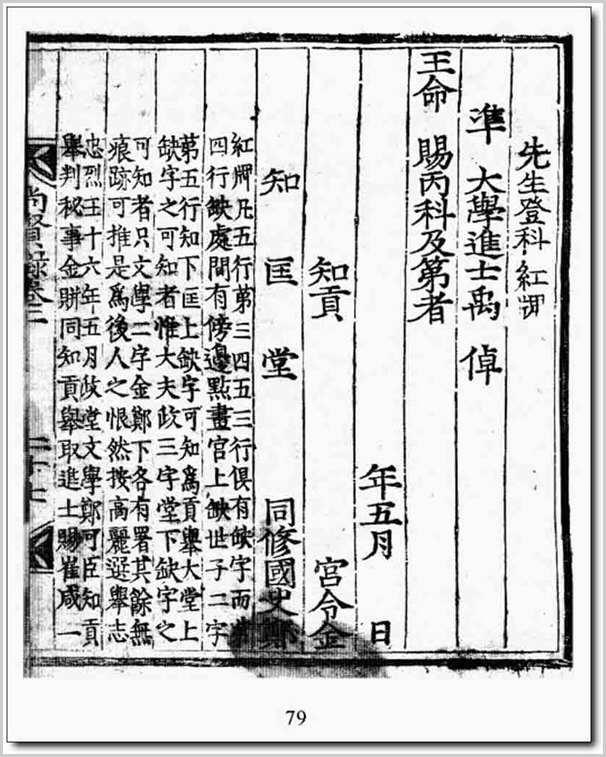 先生登科紅牌
準 大學進士禹 倬
王命 賜丙科及第者
年五月 日
知貢 宮令金
知 匡 堂 同修國史鄭
紅牌凡五行第三四五三行俱有缺字而第
四行缺處間有傍邊點畫宮上缺世子二字
第五行知下匡上缺字可知爲貢舉大堂上
缺字之可知者惟大夫政三字堂下缺字之
可知者只文學二字金鄭下各有署其餘無
痕跡可推是爲後人之恨然按高麗選舉志
忠烈王十六年五月政堂文學鄭可臣知貢
舉判秘事金賆同知貢舉取進士賜崔咸一
尚賢錄卷
79